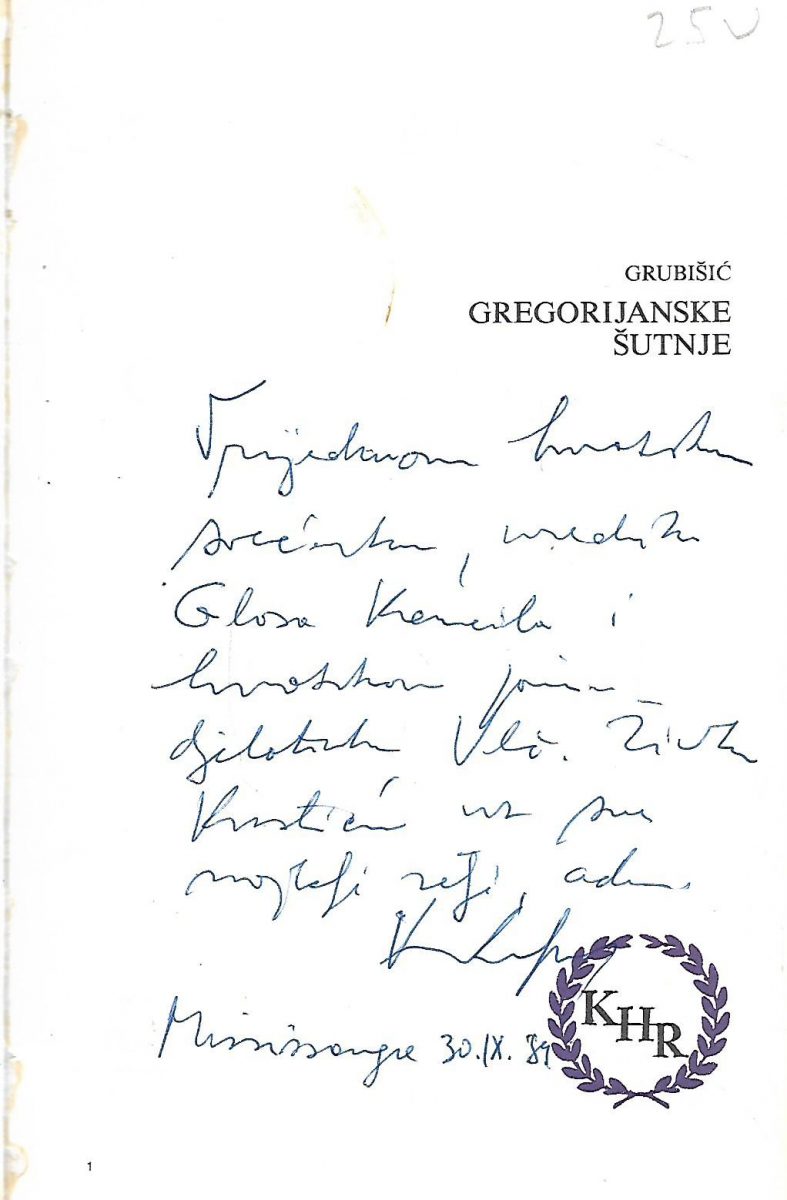 25
GRUBIŠIĆ
GREGORIJANSKE
ŠUTNJE
Vrijednom hrvatskom
svećeniku, uredniku
Glasa Koncila i
hrvatskom
djelatniku Vlč. Živku
Kustiću uz sve
najljepši
KHR
Mississauga 30.IX. 89
1